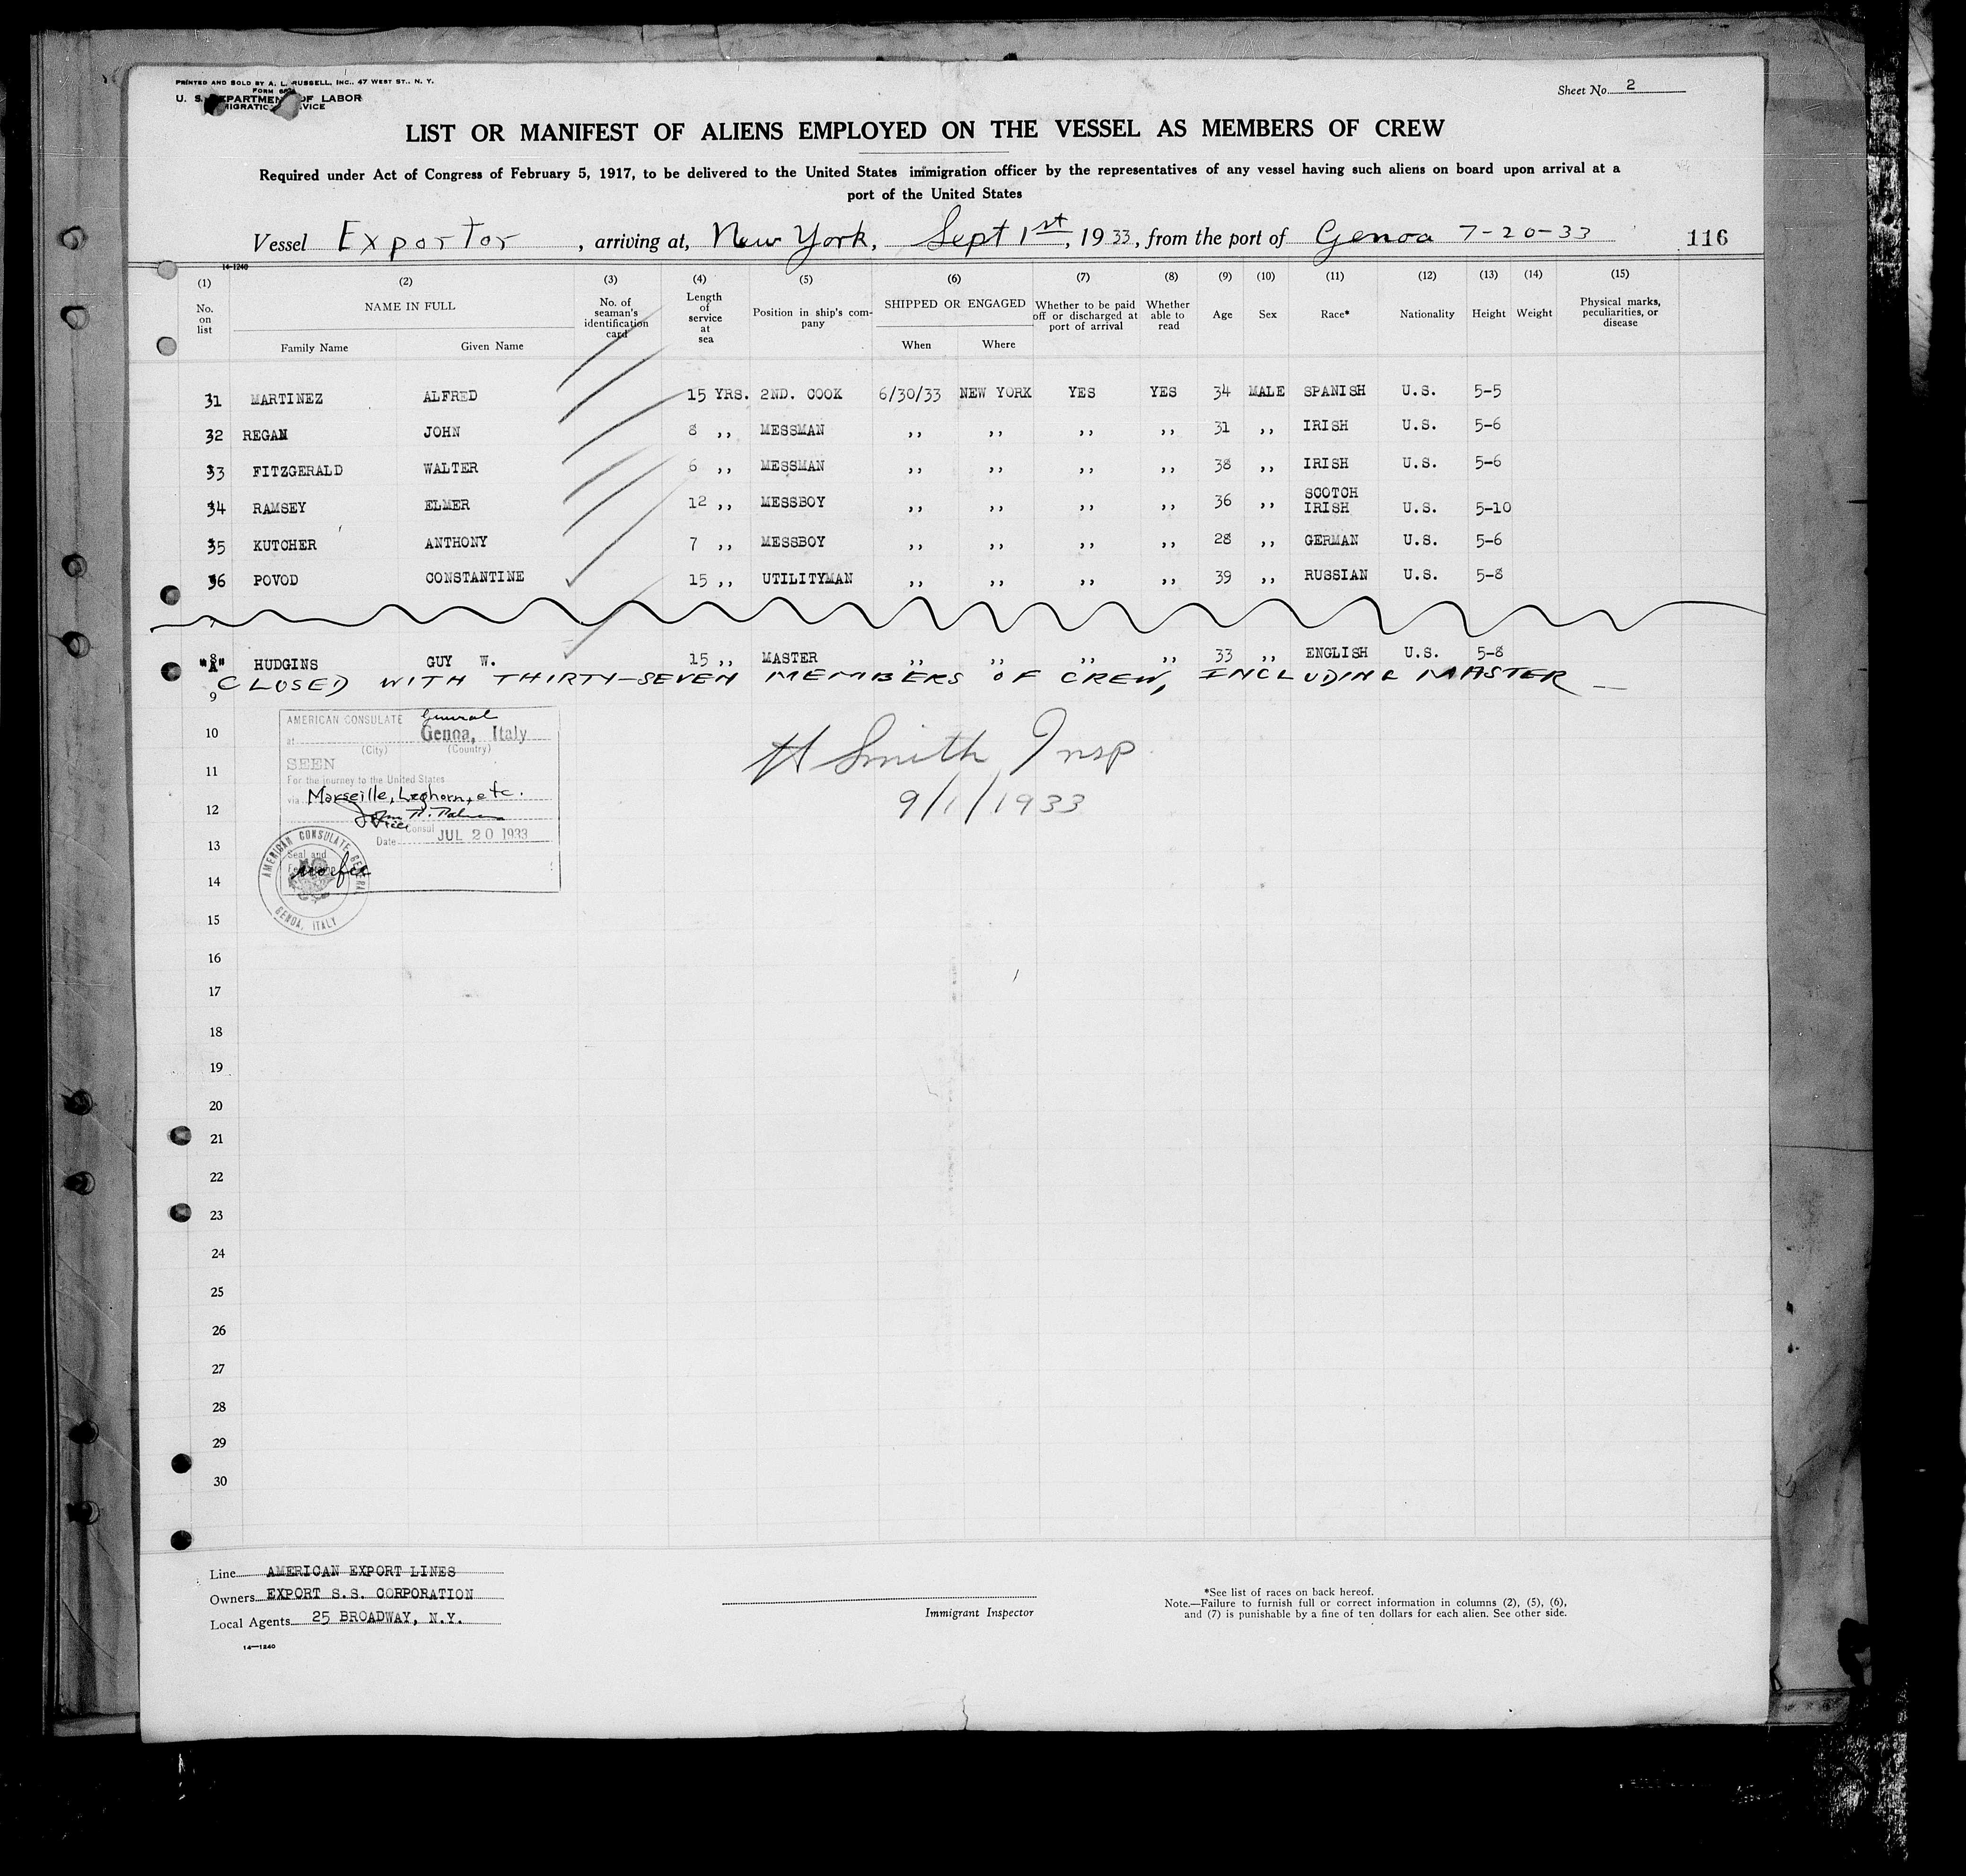 PRINTED AND SOLD BY A. L. RUSSELL, INC., 47 WEST ST., N. Y.
FORM
U. S. DEPARTMENT OF LABOR
Sheet No. 2
LIST OR MANIFEST OF ALIENS EMPLOYED ON THE VESSEL AS MEMBERS OF CREW
Required under Act of Congress of February 5, 1917, to be delivered to the United States immigration officer by the representatives of any vessel having such aliens on board upon arrival at a
port of the United States
Vessel Exportor, arriving at, New York, Sept 1st, 1933, from the port of Genoa 7-20-33 116
14-1240
(1) (2) (3) (4) (5) (6) (7) (8) (9) (10) (11) (12) (13) (14) (15)
No. on list NAME IN FULL Family Name Given Name No. of seaman's identification card Length of service at sea Position in ship's company SHIPPED OR ENGAGED When Where Whether to be paid off or discharged at port of arrival Whether able to read Age Sex Race* Nationality Height Weight Physical marks, peculiarities, or disease
31 MARTINEZ ALFRED 15 YRS. 2ND. COOK 6/30/33 NEW YORK YES YES 34 MALE SPANISH U.S. 5-5
32 REGAN JOHN 8 ,, MESSMAN ,, ,, ,, ,, 31 ,, IRISH U.S. 5-6
33 FITZGERALD WALTER 6 ,, MESSMAN ,, ,, ,, ,, 38 ,, IRISH U.S. 5-6
34 RAMSEY ELMER 12 ,, MESSBOY ,, ,, ,, ,, 36 ,, SCOTCH IRISH U.S. 5-10
35 KUTCHER ANTHONY 7 ,, MESSBOY ,, ,, ,, ,, 28 ,, GERMAN U.S. 5-6
36 POVOD CONSTANTINE 15 ,, UTILITYMAN ,, ,, ,, ,, 39 ,, RUSSIAN U.S. 5-8
"A" HUDGINS GUY W. 15 ,, MASTER ,, ,, ,, ,, 33 ,, ENGLISH U.S. 5-8
CLOSED WITH THIRTY-SEVEN MEMBERS OF CREW, INCLUDING MASTER —
9
AMERICAN CONSULATE General
at Genoa, Italy
(City) (Country)
SEEN
For the journey to the United States
via Marseille, Leghorn, etc.
Vice Consul
Date JUL 20 1933
Seal and
no fee
AMERICAN CONSULATE GENERAL
GENOA, ITALY
H Smith Insp
9/1/1933
10
11
12
13
14
15
16
17
18
19
20
21
22
23
24
25
26
27
28
29
30
Line AMERICAN EXPORT LINES
Owners EXPORT S.S. CORPORATION
Local Agents 25 BROADWAY, N.Y.
14-1240
Immigrant Inspector
*See list of races on back hereof.
Note.—Failure to furnish full or correct information in columns (2), (5), (6),
and (7) is punishable by a fine of ten dollars for each alien. See other side.